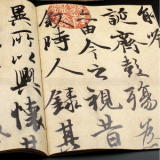 誕齊彭殤為
由今之視昔
敘時人錄其
異所以興懷其